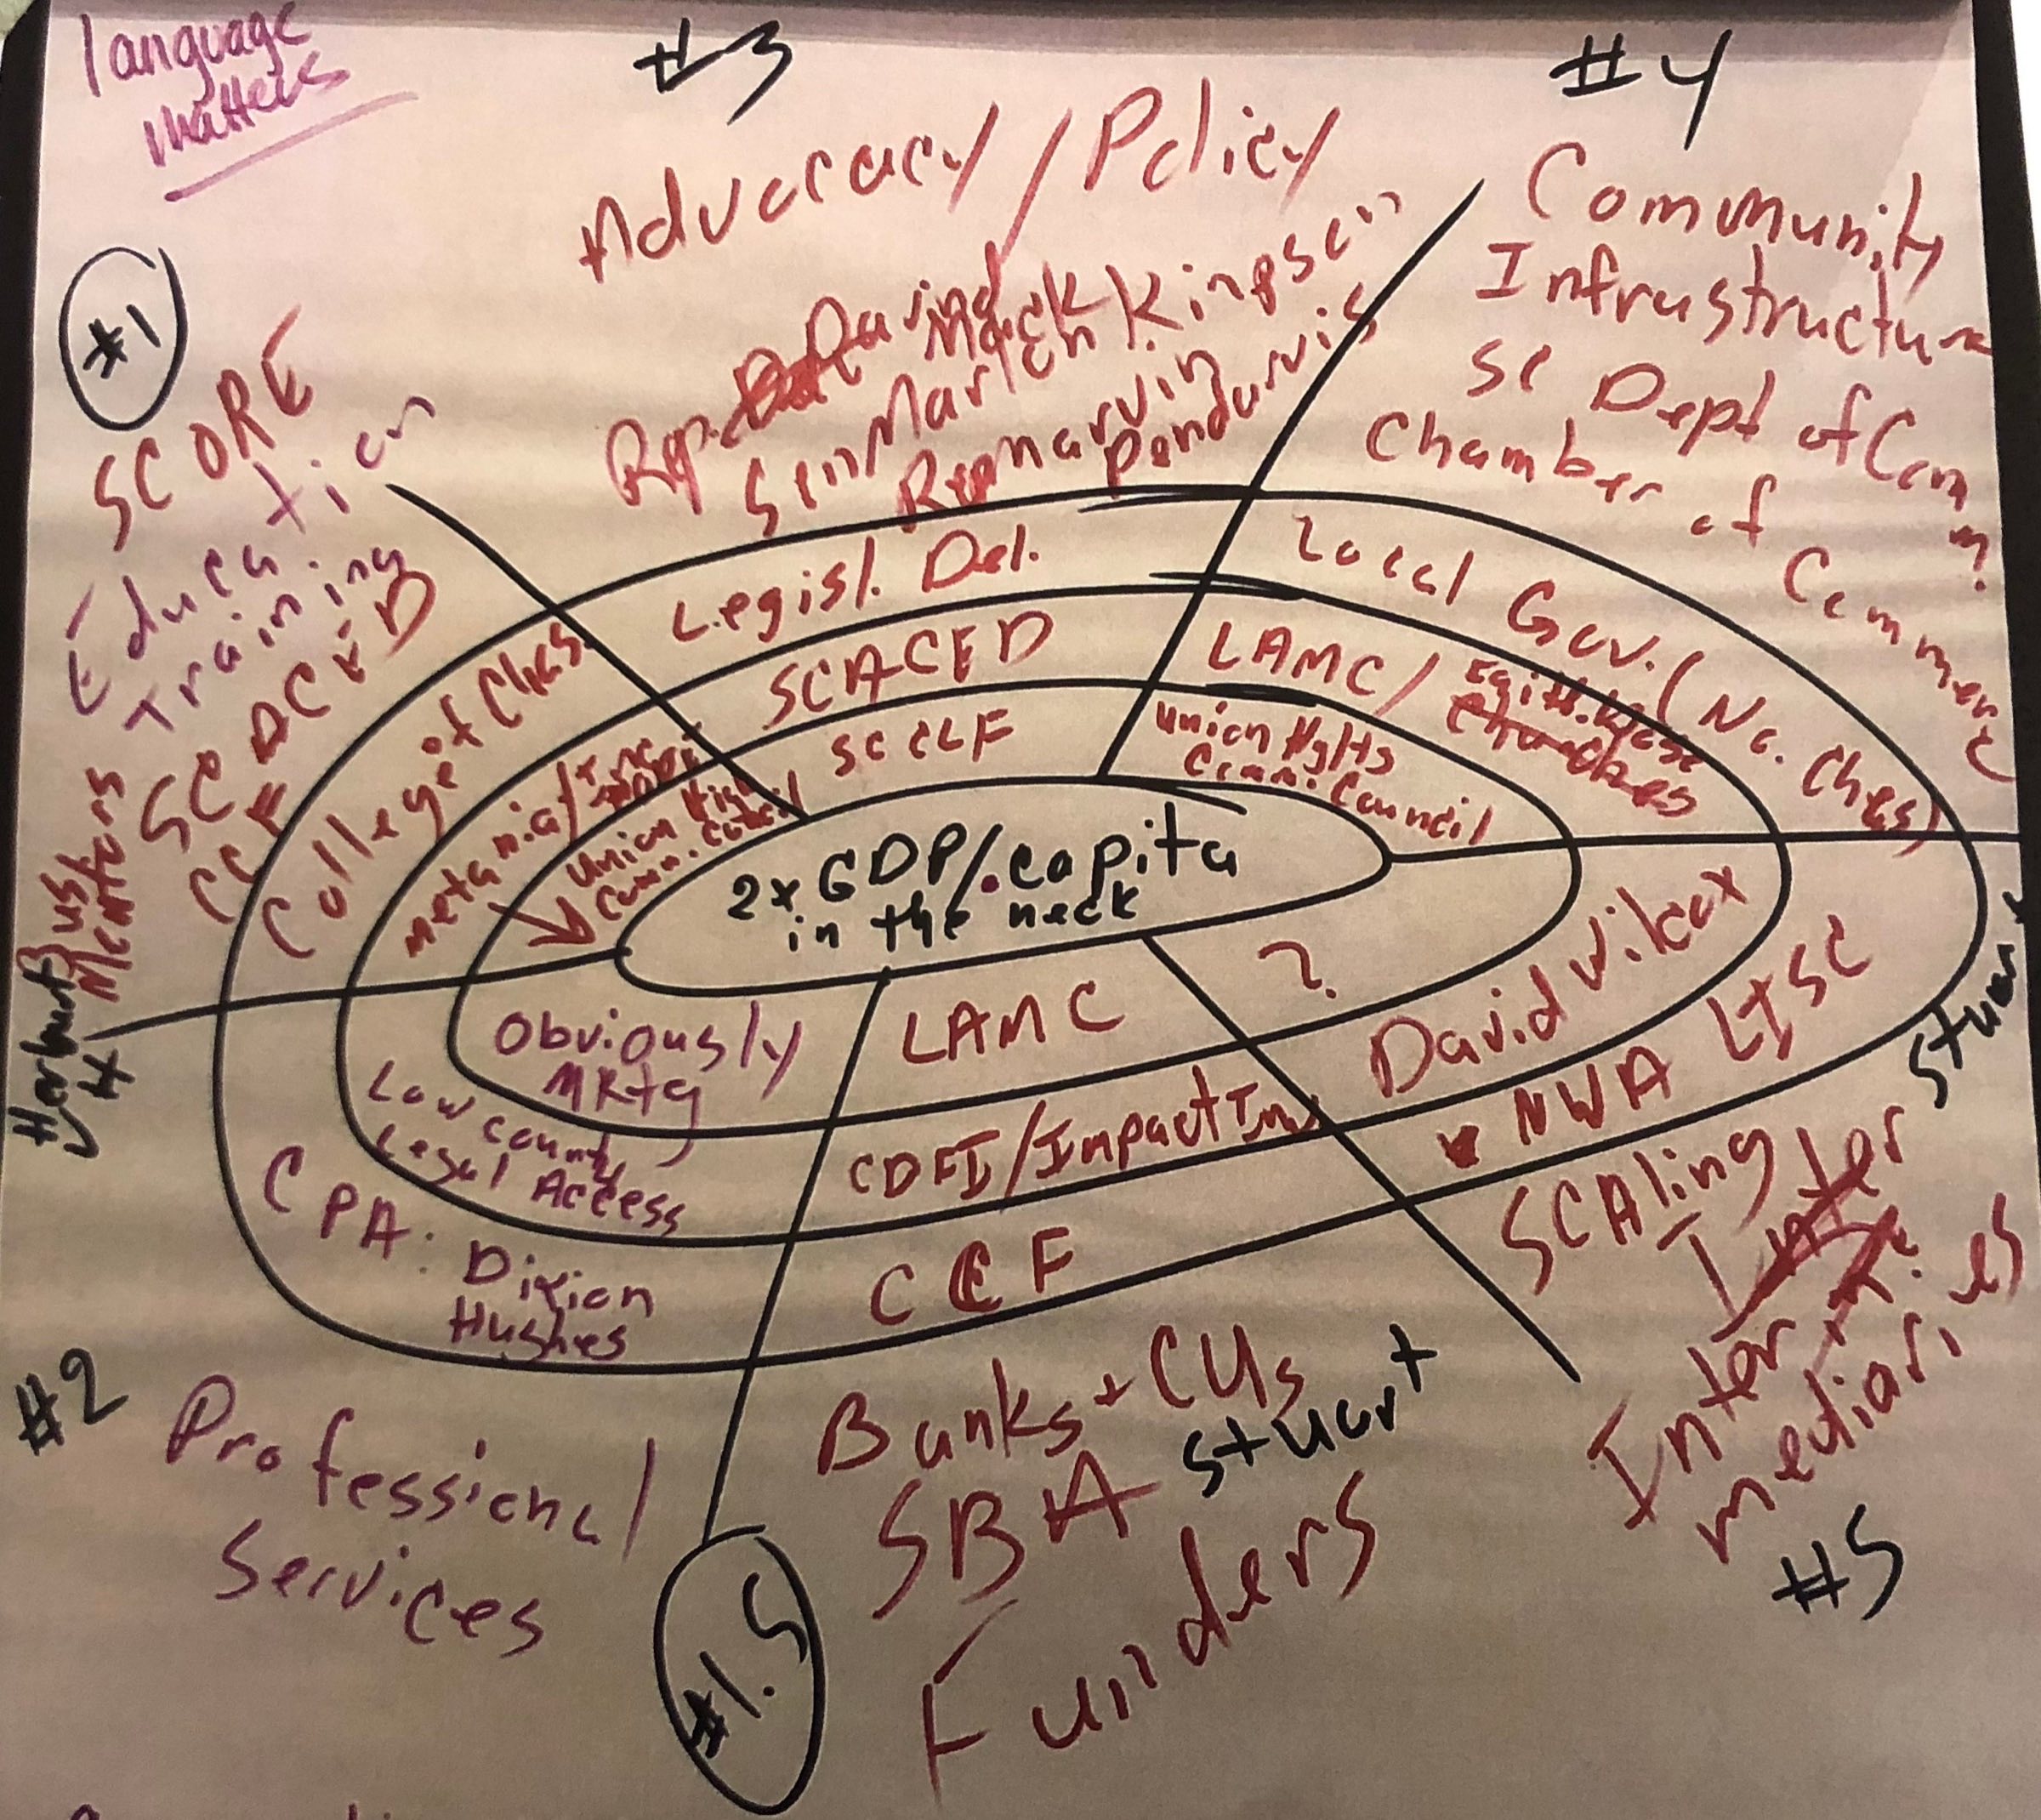 language
matters
#3
#4
Advocacy / Policy
Rep. David Mack
Sen Marlon Kimpson
Rep Marvin
Pendarvis
Community
Infrastructure
SC Dept of Comm.
Chamber of Commerce
#1
SCORE
Education
Training
SC ACED
CCF
Bus
Mentors
Herbert
College of Chas.
Legisl. Del.
Local Gov. (No. Chas)
metanoia/
Union
Comm. Council
SCACED
SCCLF
LAMC/
Union Hghts
Comm. Council
2x GDP/capita
in the neck
Obviously
MKtg
LAMC
?
Low country
Legal Access
CDFI/Impact Inv
David Wilcox
CPA: Dixion
Hughes
CCF
NWA LISC
Stuart
#2
Professional
Services
#1.5
Banks + CUs
SBA Stuart
Funders
SCAling
Inter
Inter
mediaries
#5